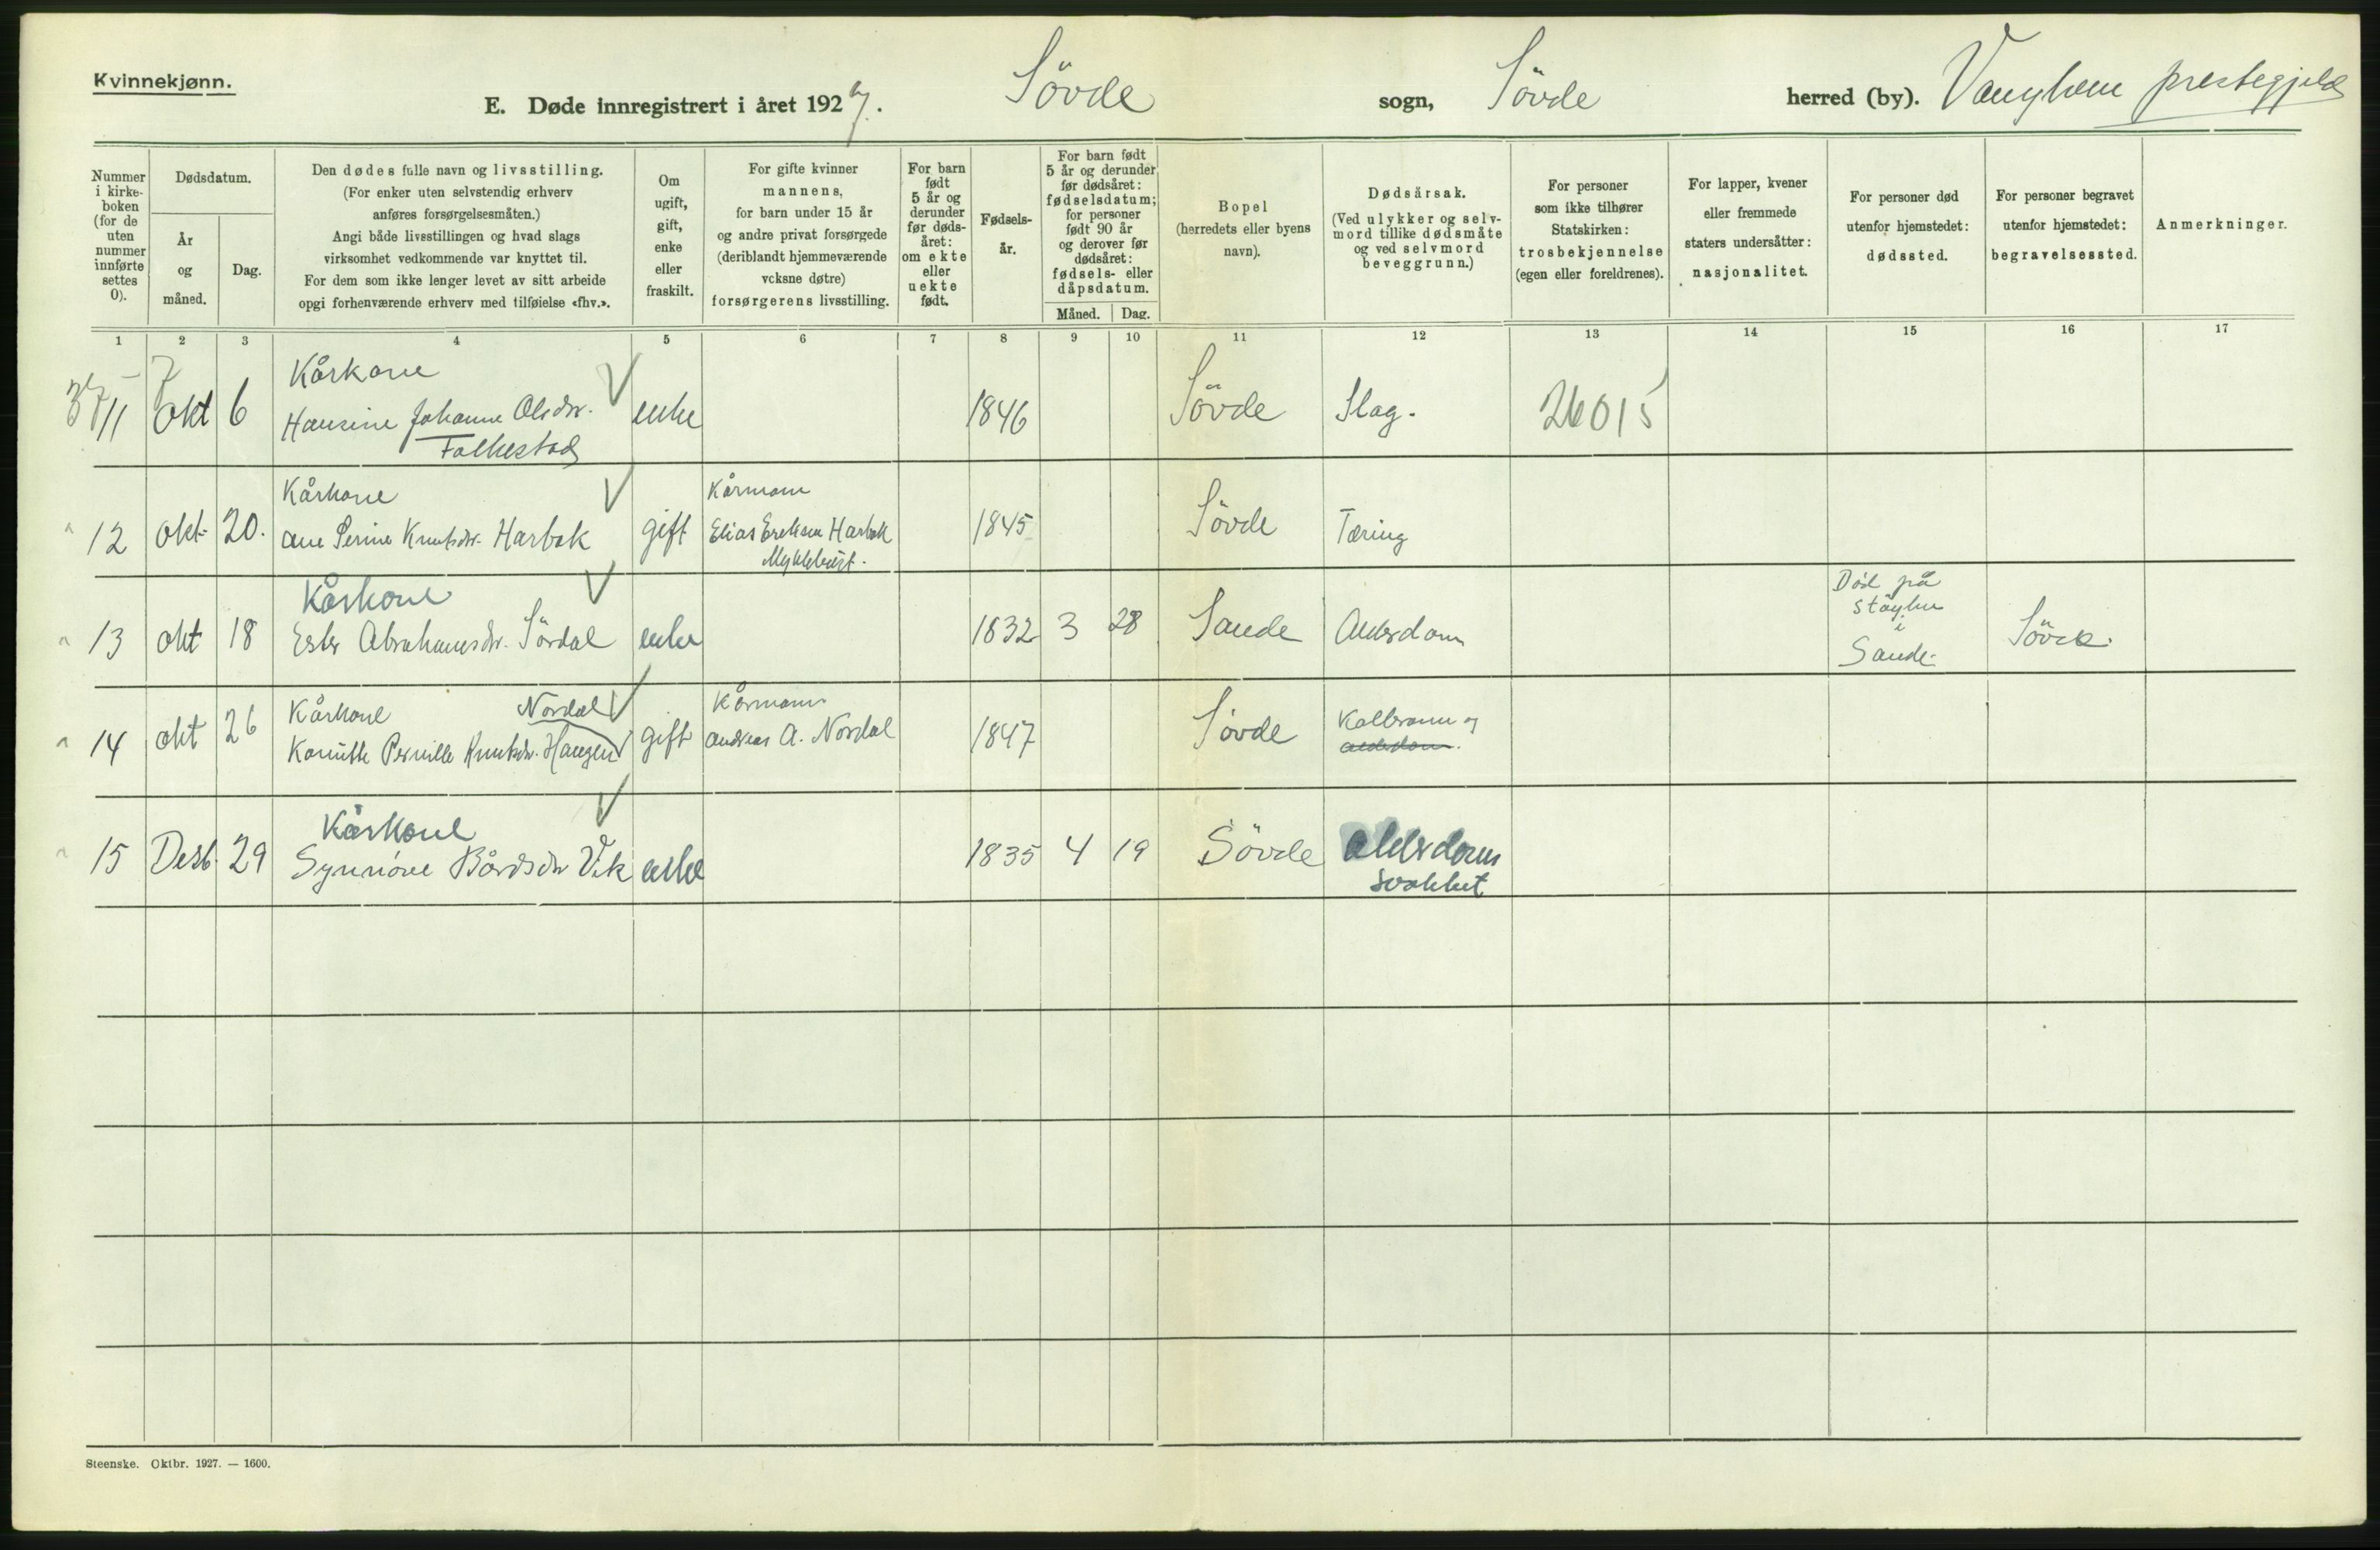 Kvinnekjønn.
E. Døde innregistrert i året 1927. Sövde sogn, Sövde herred (by). prestegjeld
Nummer i kirke-boken (for de uten nummer innførte settes 0).
Dødsdatum.
År og måned.
Dag.
Den dødes fulle navn og livsstilling.
(For enker uten selvstendig erhverv
anføres forsørgelsesmåten.)
Angi både livsstillingen og hvad slags
virksomhet vedkommende var knyttet til.
For dem som ikke lenger levet av sitt arbeide
opgi forhenværende erhverv med tilføielse «fhv.».
Om
ugift,
gift,
enke
eller
fraskilt.
For gifte kvinner
mannens,
for barn under 15 år
og andre privat forsørgede
(deriblandt hjemmeværende
vcksne døtre)
forsørgerens livsstilling.
For barn
født
5 år og
derunder
før døds-
året:
om ekte
eller
uekte
født.
Fødsels-
år.
For barn født
5 år og derunder
før dødsåret:
fødselsdatum;
for personer
født 90 år
og derover før
dødsåret:
fødsels- eller
dåpsdatum.
Måned. Dag.
Bopel
(herredets eller byens
navn).
Dødsårsak.
(Ved ulykker og selv-
mord tillike dødsmåte
og ved selvmord
beveggrunn.)
For personer
som ikke tilhører
Statskirken:
trosbekjennelse
(egen eller foreldrenes).
For lapper, kvener
eller fremmede
staters undersåtter:
nasjonalitet.
For personer død
utenfor hjemstedet:
dødssted.
For personer begravet
utenfor hjemstedet:
begravelsessted.
Anmerkninger.
1 2 3 4 5 6 7 8 9 10 11 12 13 14 15 16 17
Kårkone
11 Okt 6 Hansine Johanne Olsdtr. enke 1846 Sövde Slag. 26015
Folkestad
Kårkone Kårmann
12 okt. 20. Ane Perine Knutsdtr. Harbak gift Elias Eriksen Harbak 1845 Sövde Tæring
Myklebust.
Kårkone
13 okt 18 Ester Abrahamsdtr. Sördal enke 1832 3 28 Sande Alderdom Död på
i
Sande. Sövde.
Kårkone Nordal Kårmann
14 okt 26 Pernille Knutsdtr. Haugen gift Andreas A. Nordal 1847 Sövde Koldbrann og
alderdom.
Kårkone
15 Desb. 29 Synnöve Bårdsdtr Vik enke 1835 4 19 Sövde Alderdoms
svakhet
Steenske. Oktbr. 1927. — 1600.